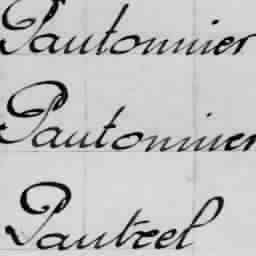 Pautonnier
Pautonnier
Pautrel